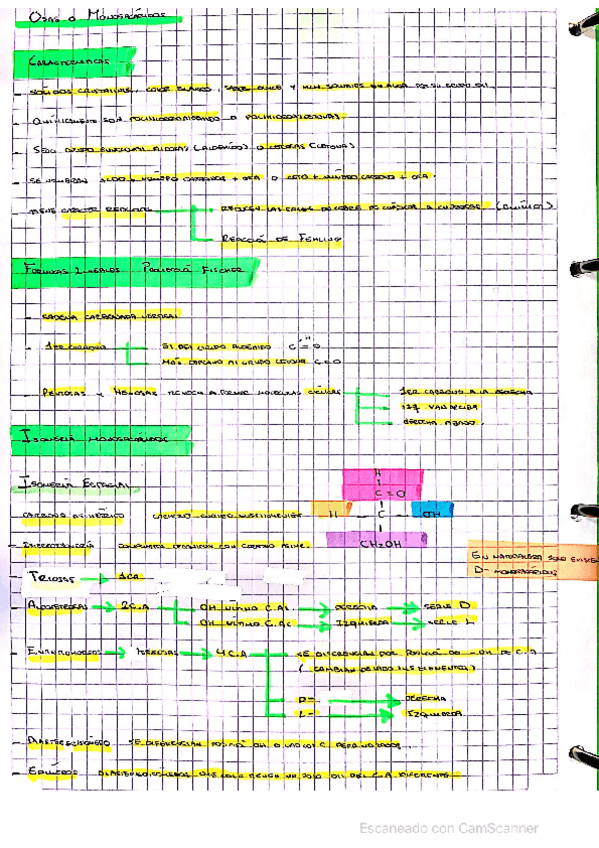 OSAS O MONOSACÁRIDOS
CARACTERÍSTICAS
- SÓLIDOS CRISTALINOS, COLOR BLANCO, SABOR DULCE Y MUY SOLUBLES EN AGUA
- QUÍMICAMENTE SON POLIHIDROXIALDEHÍDO O POLIHIDROXICETONAS
- SEGÚN GRUPO FUNCIONAL ALDOSAS (ALDEHÍDO) O CETOSAS (CETONA)
- SE NOMBRAN ALDO + NÚMERO CARBONOS + OSA O CETO + NÚMERO CARBONO + OSA.
- TIENE CARÁCTER REDUCTOR → REDUCEN LAS SALES DE COBRE DE CÚPRICAS A CUPROSAS
REACCIÓN DE FEHLING
FÓRMULAS LINEALES PROYECCIÓN FISCHER
- CADENA CARBONADA VERTICAL
- 1ER CARBONO
ES DEL GRUPO ALDEHÍDO C=O H
MÁS CERCANO AL GRUPO CETONA C=O
- PENTOSAS Y HEXOSAS TIENDEN A FORMAR MOLÉCULAS CÍCLICAS
1ER CARBONO A LA DERECHA
IZQ VAN ARRIBA
DERECHA ABAJO
ISOMERÍA MONOSACÁRIDOS
ISOMERÍA ESPACIAL
H
C=O
- CARBONO ASIMÉTRICO
H - C - OH
CH₂OH
- ESTEREOISOMERÍA COMPUESTOS ORGÁNICOS CON CARBONO ASIM.
EN NATURALEZA SOLO EXISTEN
D- MONOSACÁRIDOS
- TRIOSAS → 1CA
- ALDOTETROSAS → 2C.A
OH ÚLTIMO C.AS → DERECHA → SERIE D
OH ÚLTIMO C.AS → IZQUIERDA → SERIE L
- ENANTIÓMEROS → → 4C.A SE DIFERENCIAN POR POSICIÓN DE -OH DE C.A
(CAMBIAN DE LADO LOS ELEMENTOS)
D- → DERECHA
L- → IZQUIERDA
- SE DIFERENCIAN POSICIÓN OH O VARIOS C PERO NO TODOS
- EPÍMEROS DIASTEREOISÓMEROS QUE SOLO TIENEN UN SOLO OH DEL C.A DIFERENTE
Escaneado con CamScanner